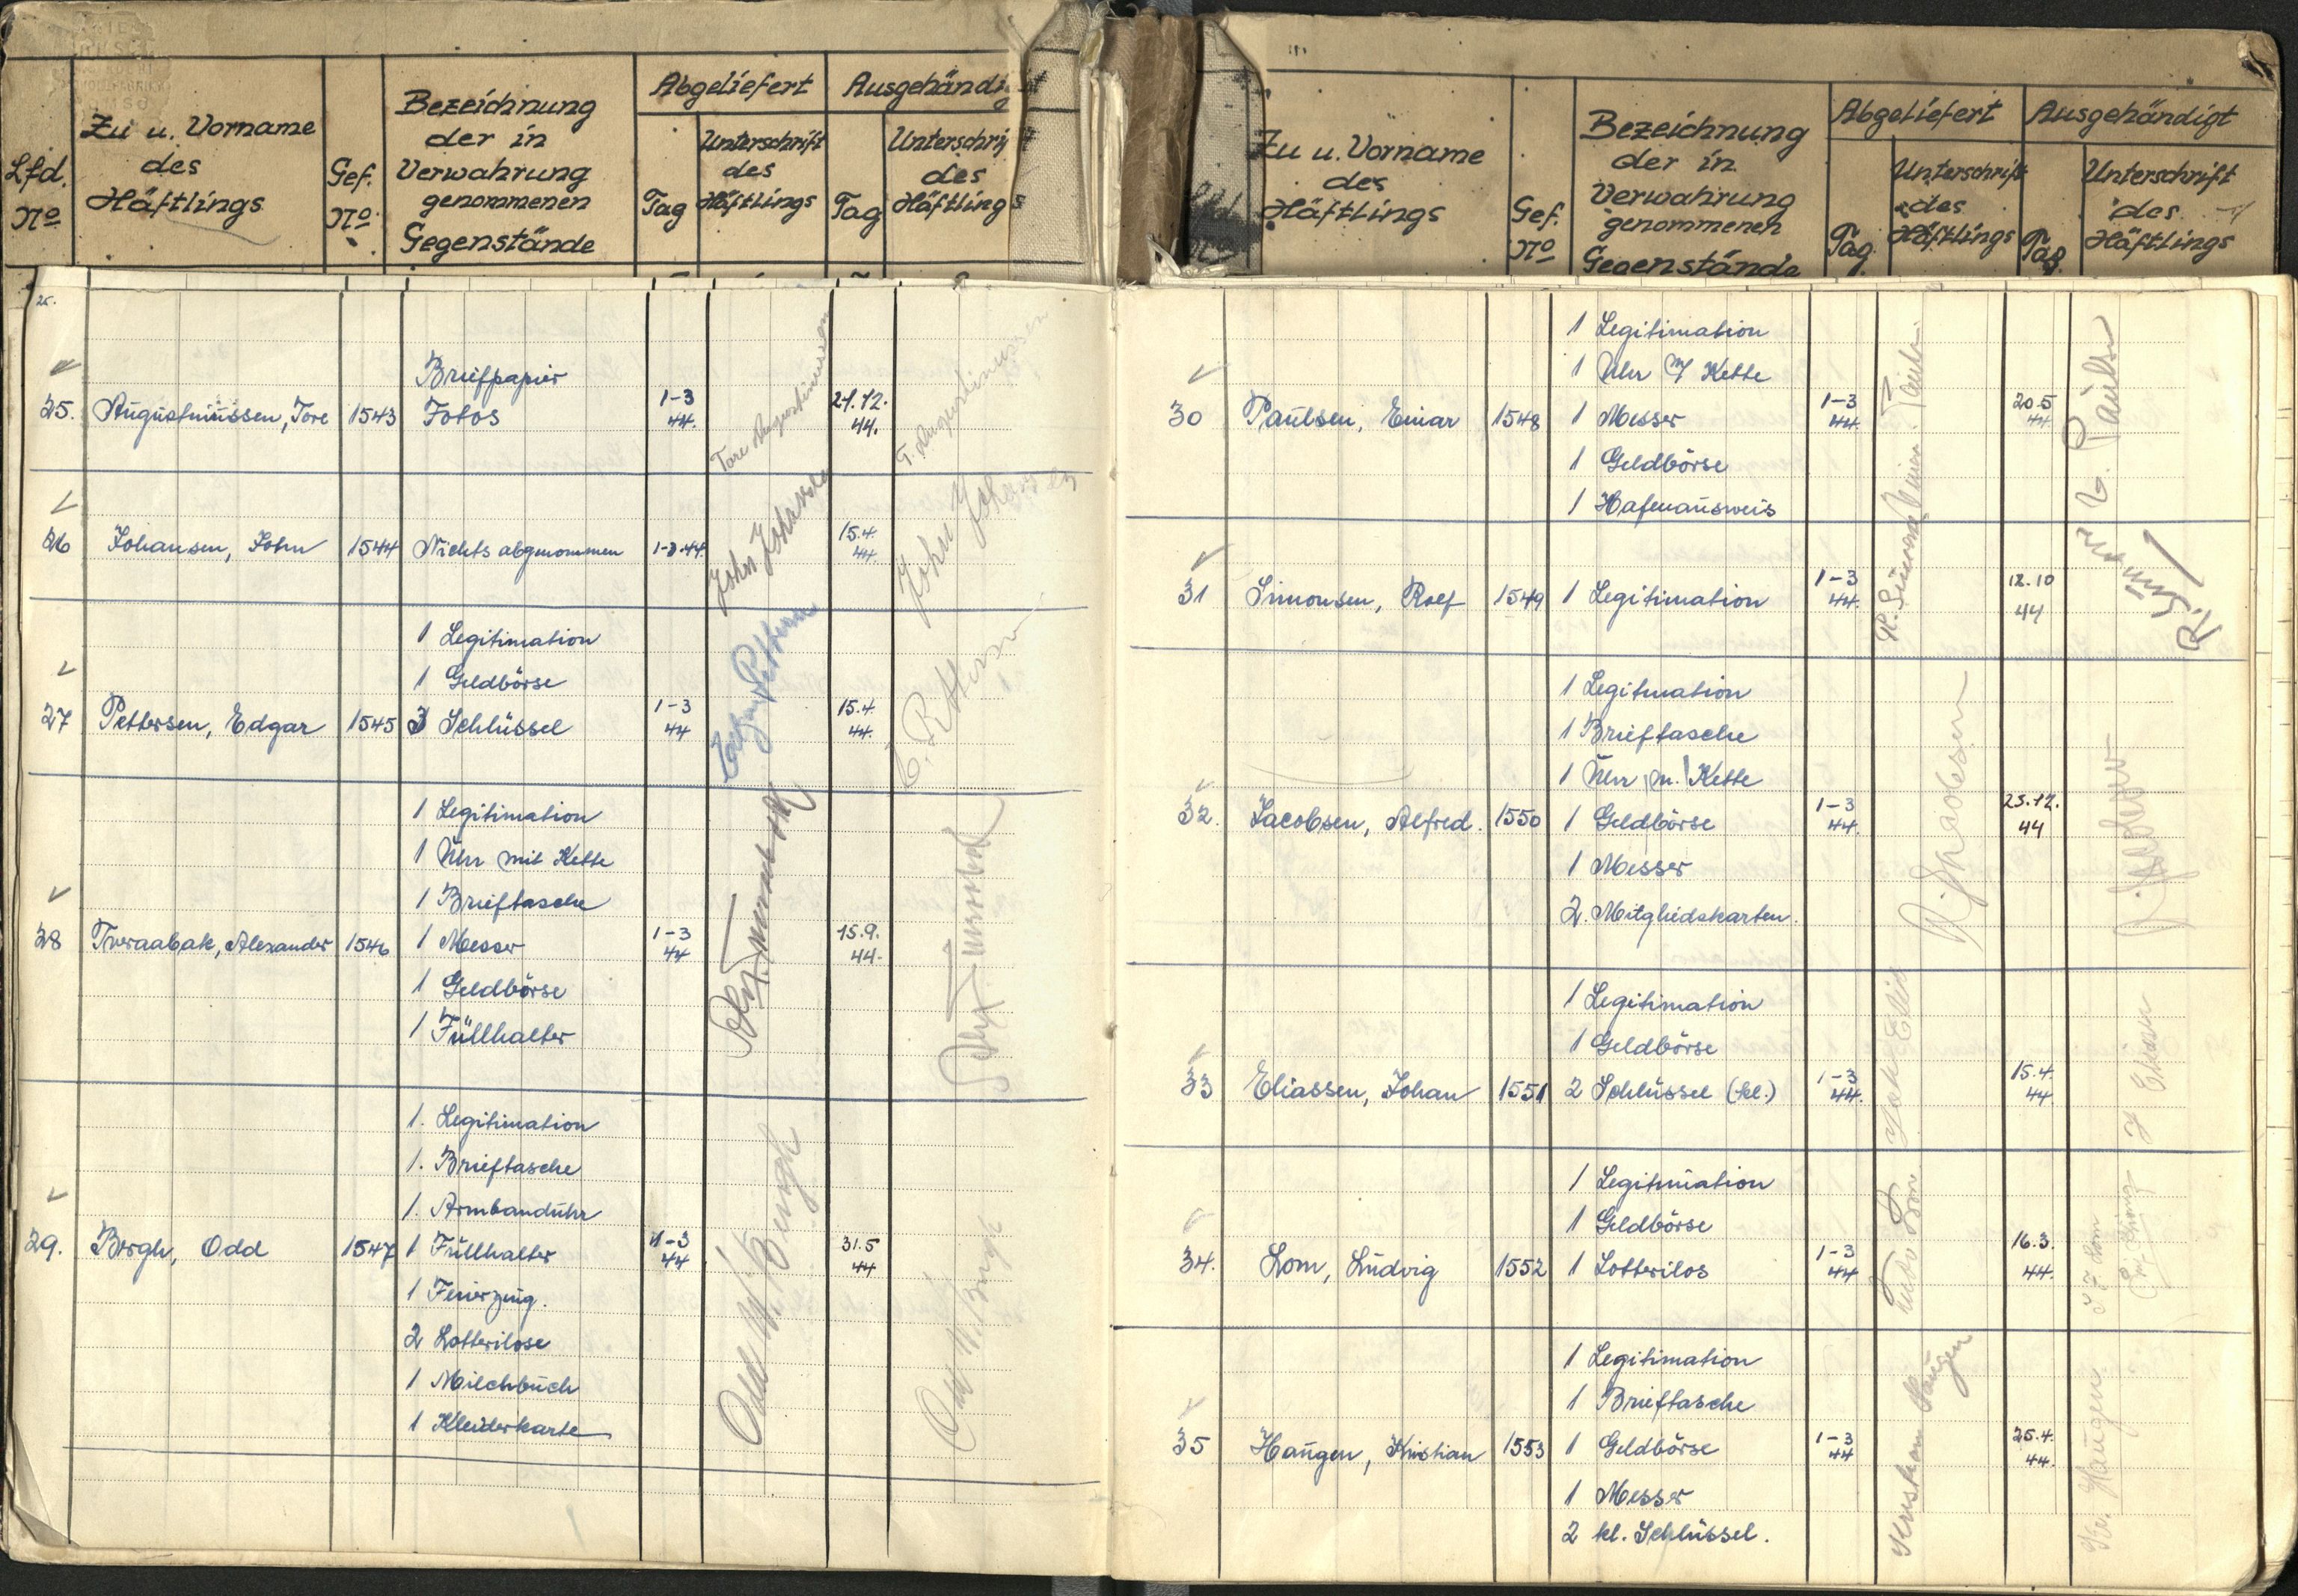 Lfd. No
Zu u. Vorname des Häftlings
Gef. No
Bezeichnung der in Verwahrung genommenen Gegenstände
Abgeliefert
Tag
Unterschrift des Häftlings
Ausgehändigt
Tag
Unterschrift des Häftlings
25.
Briefpapier
25. Augustinussen, Tore 1543 Fotos 1-3 44. Tore Augustinussen 21.12. 44. T. Augustinussen
26 Johansen, John 1544 Nichts abgenommen 1-3.44. John Johansen 15.4. 44. John Johansen
1 Legitimation
1 Geldbörse
27 Pettersen, Edgar 1545 3 Schlüssel 1-3 44 Edgar Pettersen 15.4. 44. E. Pettersen
1 Legitimation
1 Uhr mit Kette
1 Brieftasche
28 Tveraabak, Alexander 1546 1 Messer 1-3 44 15.9. 44.
1 Geldbörse
1 Füllhalter
1. Legitimation
1. Brieftasche
1. Armbanduhr
29. Bergh, Odd 1547 1 Füllhalter 1-3 44 Odd W. Bergh 31.5 44 Odd W. Bergh
1 Feuerzeug.
2 Lotterilose
1 Milchbuch
1 Kleiderkarte
Zu u. Vorname des Häftlings
Gef. No
Bezeichnung der in Verwahrung genommenen Gegenstände
Abgeliefert
Tag
Unterschrift des Häftlings
Ausgehändigt
Tag
Unterschrift des Häftlings
1 Legitimation
1 Uhr m Kette
30 Paulsen, Einar 1548 1 Messer 1-3 44. Einar Paulsen 20.5 44 E. Paulsen
1 Geldbörse
1 Hafenausweis
31 Simonsen, Rolf 1549 1 Legitimation 1-3 44. R. Simonsen 12.10 44 R. Simonsen
1 Legitimation
1 Brieftasche
1 Uhr m. Kette
32. Jacobsen, Alfred. 1550 1 Geldbörse 1-3 44. A. Jacobsen 23.12. 44
1 Messer
2. Mitgliedskarten.
1 Legitimation
1 Geldbörse
33 Eliassen, Johan 1551 2 Schlüssel (kl.) 1-3 44. 15.4. 44 J Eliassen
1 Legitimation
1 Geldbörse
34. Lom, Ludvig 1552 1 Lotterilos 1-3 44 Ludv Lom 16.3. 44.
1 Legitimation
1 Brieftasche
35 Haugen, Kristian 1553 1 Geldbörse 1-3 44 Kristian Haugen 25.4. 44. Kr. Haugen
1 Messer
2 kl. Schlüssel.